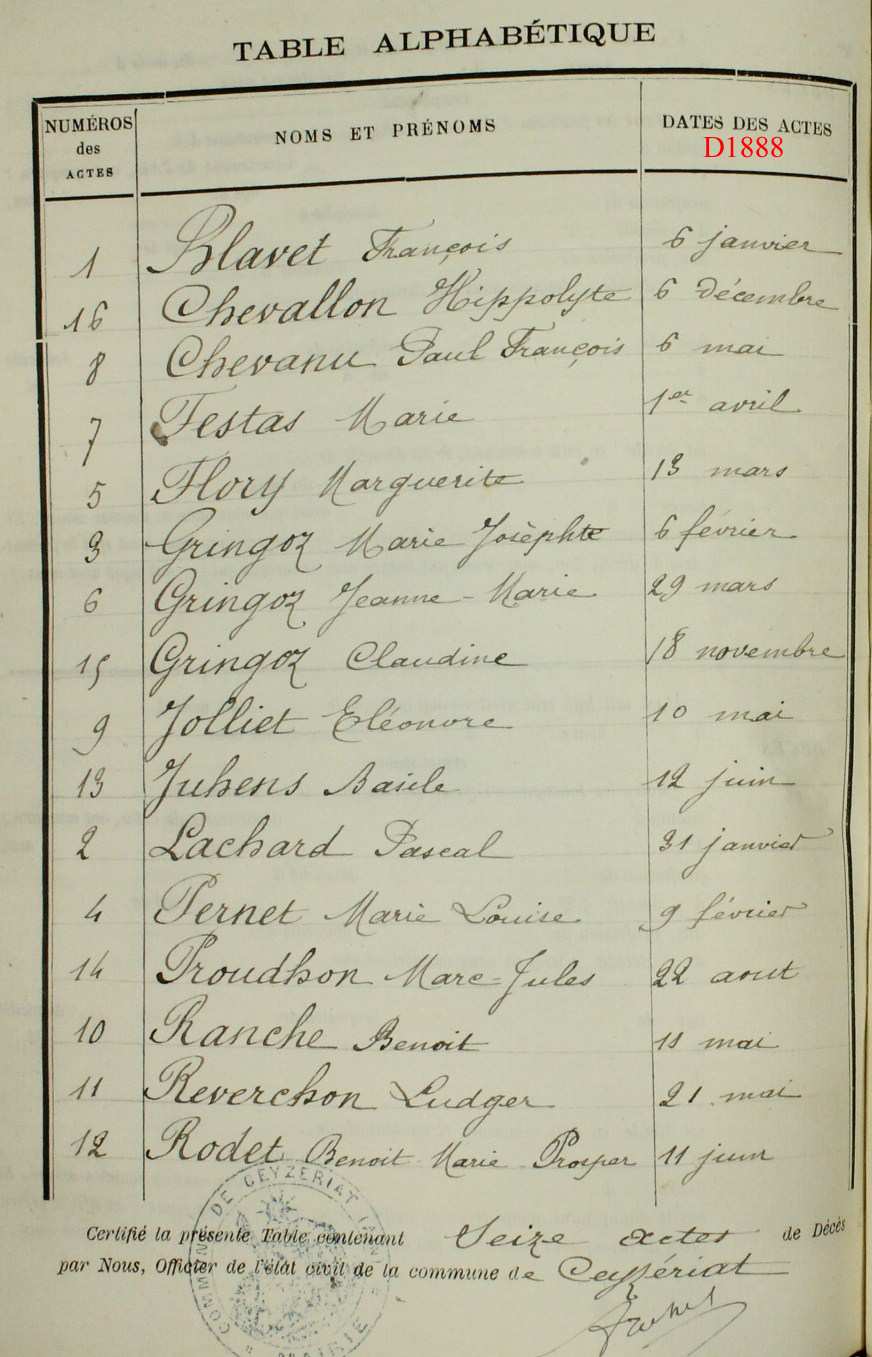 TABLE ALPHABÉTIQUE
NUMÉROS des ACTES NOMS ET PRÉNOMS DATES DES ACTES
D1888
1 Blavet François 6 janvier
16 Chevallon Hippolyte 6 décembre
8 Chevanu Paul François 6 mai
7 Festas Marie 1er avril
5 Flory Marguerite 13 mars
3 Gringoz Marie Josèphte 6 février
6 Gringoz Jeanne-Marie 29 mars
15 Gringoz Claudine 18 novembre
9 Jolliet Eléonore 10 mai
13 Juhens Basile 12 juin
2 Lachard Pascal 31 janvier
4 Pernet Marie Louise 9 février
14 Proudhon Marc-Jules 22 aout
10 Ranche Benoit 11 mai
11 Reverchon Ludger 21 mai
12 Rodet Benoit Marie Prosper 11 juin
Certifié la présente Table contenant Seize actes de Décès
par Nous, Officier de l'état civil de la commune de Ceyzériat
DE CEYZERIAT
MAIRIE